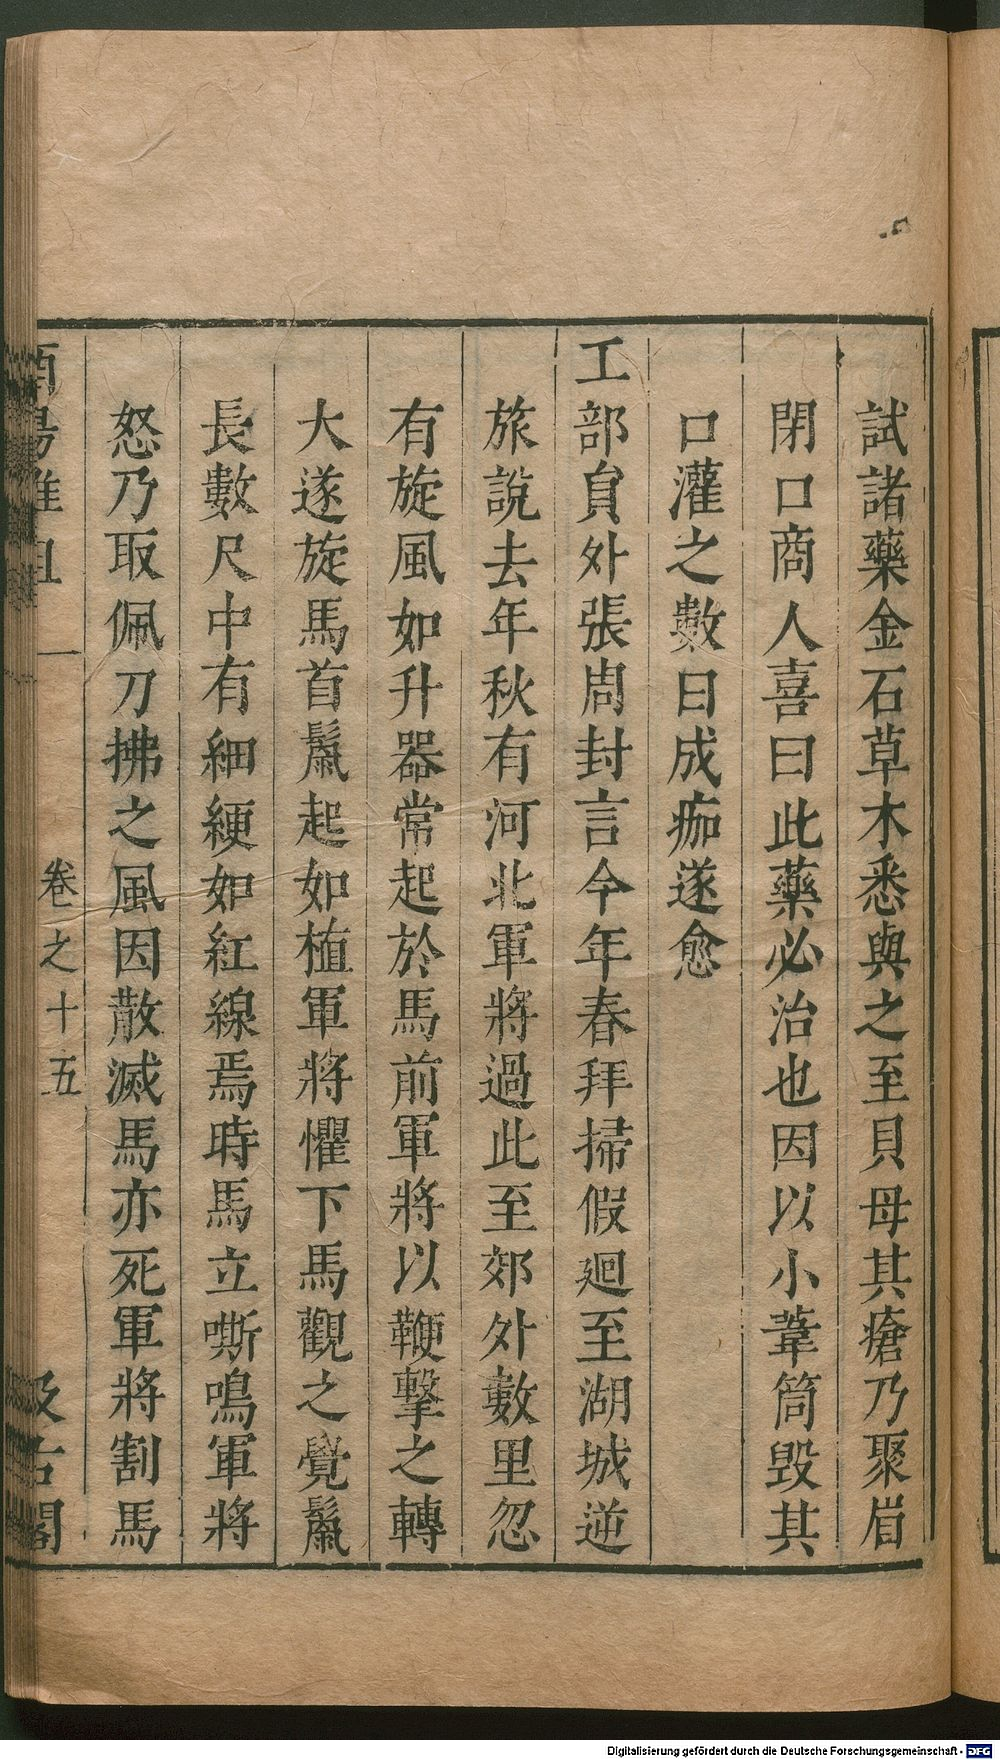 試諸藥金石草木悉與之至貝母其瘡乃聚眉
閉口商人喜曰此藥必治也因以小葦筒毀其
口灌之數日成痂遂愈
工部員外張周封言今年春拜掃假廻至湖城逆
旅說去年秋有河北軍將過此至郊外數里忽
有旋風如升器常起於馬前軍將以鞭擊之轉
大遂旋馬首鬣起如植軍將懼下馬觀之覺鬣
長數尺中有細綆如紅線焉時馬立嘶鳴軍將
怒乃取佩刀拂之風因散滅馬亦死軍將割馬
酉陽雜俎 卷之十五 汲古閣
Digitalisierung gefördert durch die Deutsche Forschungsgemeinschaft - DFG